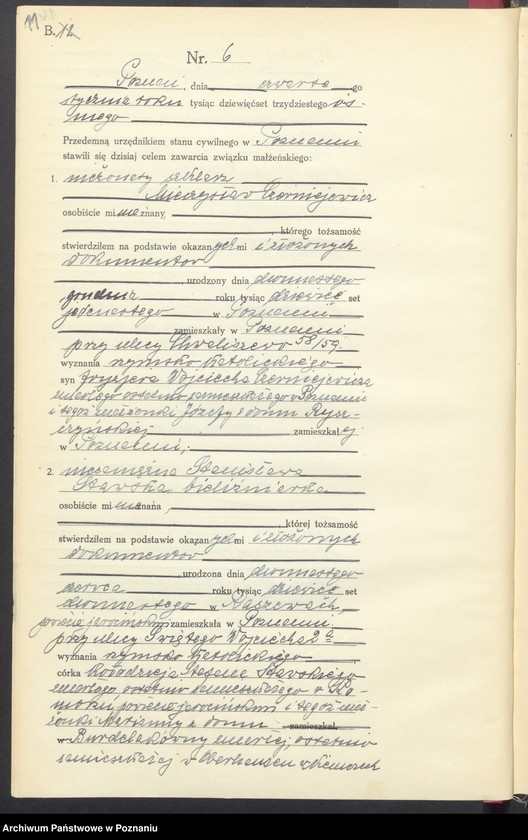 11
B.
Nr. 6
Poznań, dnia czwarte go
stycznia roku tysiąc dziewięćset trzydziestego ós-
mego
Przedemną urzędnikiem stanu cywilnego w Poznaniu
stawili się dzisiaj celem zawarcia związku małżeńskiego:
1. nieżonaty
Mieczysław Czerniejewicz
osobiście mi nieznany,
, którego tożsamość
stwierdziłem na podstawie okazanych mi i złożonych
dokumentów
, urodzony dnia dwunastego
grudnia roku tysiąc dziewięć set
jedenastego w Poznaniu
zamieszkały w Poznaniu
przy ulicy Chwaliszewo 58/59.
wyznania rzymsko katolickiego
syn fryzjera Wojciecha Czerniejewicza
zmarłego ostatnio zamieszkałego w Poznaniu
i tegoż małżonki Józefy z domu
zamieszkałej
w Poznaniu,
2. niezamężna Stanisława
Stawska bieliźniarka
osobiście mi nieznana,
, której tożsamość
stwierdziłem na podstawie okazanych mi i złożonych
dokumentów
, urodzona dnia dwunastego
roku tysiąc dziewięć set
dwunastego w
powiecie jarocińskim zamieszkała w Poznaniu
przy ulicy Świętego Wojciecha 2a
wyznania rzymsko katolickiego
córka kołodzieja Stefana Stawskiego
zmarłego ostatnio zamieszkałego w
powiecie jarocińskim i tegoż mał-
żonki Marianny z domu zamieszkał.
w zmarłej, ostatnio
zamieszkałej w Oberhausen w Niemczech
Archiwum Państwowe w Poznaniu